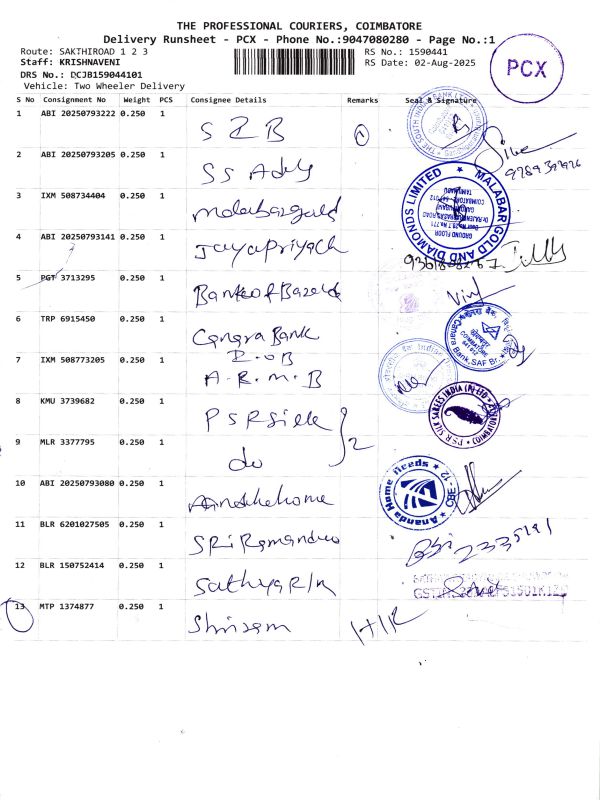 THE PROFESSIONAL COURIERS, COIMBATORE
Delivery Runsheet - PCX - Phone No.:9047080280 - Page No.:1
Route: SAKTHIROAD 1 2 3
RS No.: 1590441
Staff: KRISHNAVENI
RS Date: 02-Aug-2025
PCX
DRS No.: DCJB159044101
Vehicle: Two Wheeler Delivery
S No Consignment No Weight PCS Consignee Details Remarks Seal & Signature
1 ABI 20250793222 0.250 1 S I B
2 ABI 20250793205 0.250 1 SS
9789392926
3 IXM 508734404 0.250 1 malabargold
MALABAR GOLD AND DIAMONDS LIMITED
GROUND FLOOR
COIMBATORE
TAMILNADU
4 ABI 20250793141 0.250 1 Jayapriya
5 PGT 3713295 0.250 1 Bank of
6 TRP 6915450 0.250 1 Canara Bank
Canara Bank, SAF Br.
COIMBATORE
641 012
7 IXM 508773205 0.250 1 I.O.B
A.R.M.B
8 KMU 3739682 0.250 1 PSR Silk
P.S.R SILK SAREES INDIA (P) LTD COIMBATORE
9 MLR 3377795 0.250 1 do 2
10 ABI 20250793080 0.250 1
Ananda Home Needs CBE - 12
11 BLR 6201027505 0.250 1 SRi
12 BLR 150752414 0.250 1 Sathya
13 MTP 1374877 0.250 1 Shriram